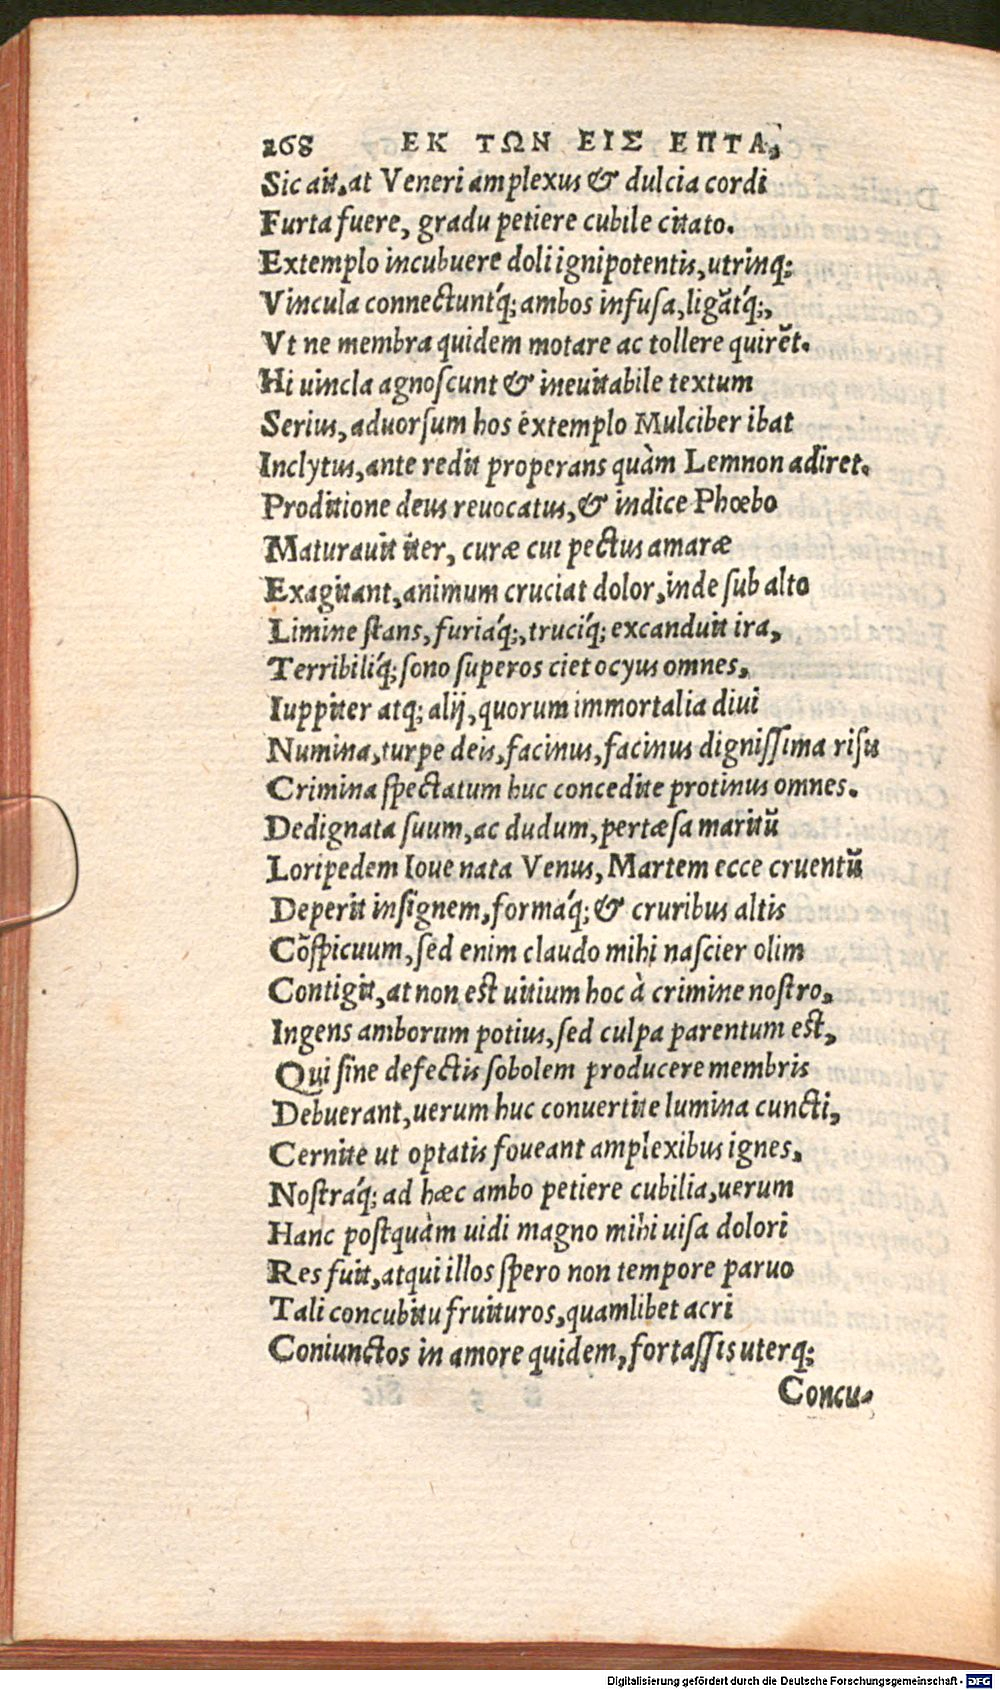 268 ΕΚ ΤΩΝ ΕΙΣ ΕΠΤΑ,
Sic ait. at Veneri amplexus & dulcia cordi
Furta fuere, gradu petiere cubile citato.
Extemplo incubuere doli ignipotentis, utrinq;
Vincula connectunt'q; ambos infusa, ligāt'q;,
Vt ne membra quidem motare ac tollere quirēt.
Hi uincla agnoscunt & ineuitabile textum
Serius, aduorsum hos extemplo Mulciber ibat
Inclytus, ante redit properans quàm Lemnon adiret.
Proditione deus reuocatus, & indice Phœbo
Maturauit iter, curæ cui pectus amaræ
Exagitant, animum cruciat dolor, inde sub alto
Limine stans, furiá'q;, truci'q; excanduit ira,
Terribili'q; sono superos ciet ocyus omnes,
Iuppiter atq; alij, quorum immortalia diui
Numina, turpe deis, facinus, facinus dignissima risu
Crimina spectatum huc concedite protinus omnes.
Dedignata suum, ac dudum, pertæsa maritū
Loripedem Ioue nata Venus, Martem ecce cruentū
Deperit insignem, forma'q; & cruribus altis
Cōspicuum, sed enim claudo mihi nascier olim
Contigit, at non est uitium hoc à crimine nostro,
Ingens amborum potius, sed culpa parentum est,
Qui sine defectis sobolem producere membris
Debuerant, uerum huc conuertite lumina cuncti,
Cernite ut optatis foueant amplexibus ignes,
Nostra'q; ad hæc ambo petiere cubilia, uerum
Hanc postquàm uidi magno mihi uisa dolori
Res fuit, atqui illos spero non tempore paruo
Tali concubitu fruituros, quamlibet acri
Coniunctos in amore quidem, fortassis uterq;
Concu-
Digitalisierung gefördert durch die Deutsche Forschungsgemeinschaft - DFG